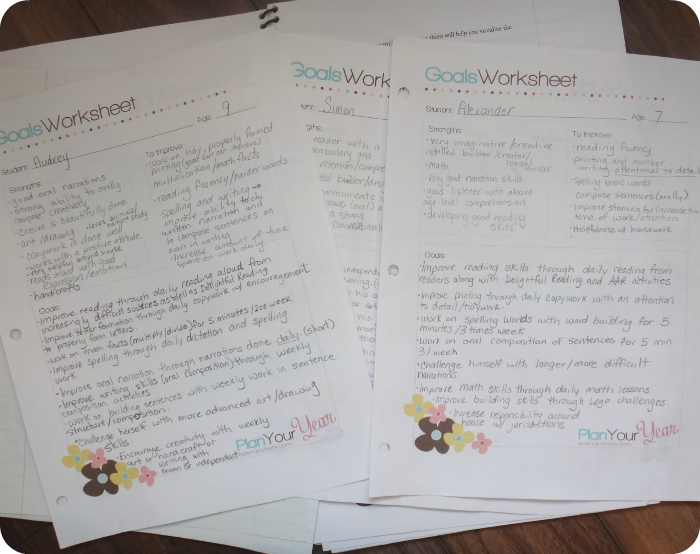 them will help you visualize the
GoalsWorksheet
Student: Audrey Age: 9
Strengths:
- good oral narrations
- strong ability to orally
compose creatively
- cursive is beautifully done
- art/drawing - loves
nature study
- copywork is done well
works with a positive attitude
- very helpful around house
- reads aloud with good
expression/emotion
- handicrafts
To Improve:
- work on tidy, properly formed
printing
- multiplication/math facts
- reading fluency/harder words
- spelling and writing →
improve ability to do
written narration and
to compose sentences on
own in writing
- increase amount of time
spent on work daily
Goals:
- Improve reading through daily reading aloud from
increasingly difficult sources as well as Delightful Reading
- Improve letter formation through daily copywork w/ encouragement
to properly form letters.
- work on math facts (multiply/divide) for 5 minutes/2ce week
- Improve spelling through daily dictation and spelling
work
- Improve oral narration through narrations done daily (short)
- Improve writing skills (oral composition) through weekly
composition activities
- Work on building sentences with weekly work in sentence
structure/composition.
- Challenge herself with more advanced art/drawing
skills
- Encourage creativity with weekly
art or handicraft or
writing with
from or independent
PlanYourYear
GoalsWork
Simon
reader with a
vocabulary and
GoalsWorksheet
Student: Alexander Age: 7
Strengths:
- very imaginative/creative
- skilled builder/creator/
designer
- math
- very good narration skills
- good listener with above
age level comprehension
- developing good reading
skills
To Improve:
- reading fluency
- printing and number
writing attentional to detail
- spelling basic words
- compose sentences (orally)
- improve stamina for/increase the
time of work/attention
- Helpfulness w/ housework
Goals:
- Improve reading skills through daily reading from
readers along with Delightful Reading and AAR activities
- Improve printing through daily copywork with an attention
to detail/tidy work
- Work on spelling words with word building for 5
minutes/3 times week
- Work on oral composition of sentences for 5 min
3/week
- Challenge himself with longer/more difficult
narrations
- Improve math skills through daily math lessons
- Improve building skills through Lego challenges.
- Increase responsibility around
house w/ jurisdictions
PlanYourYear